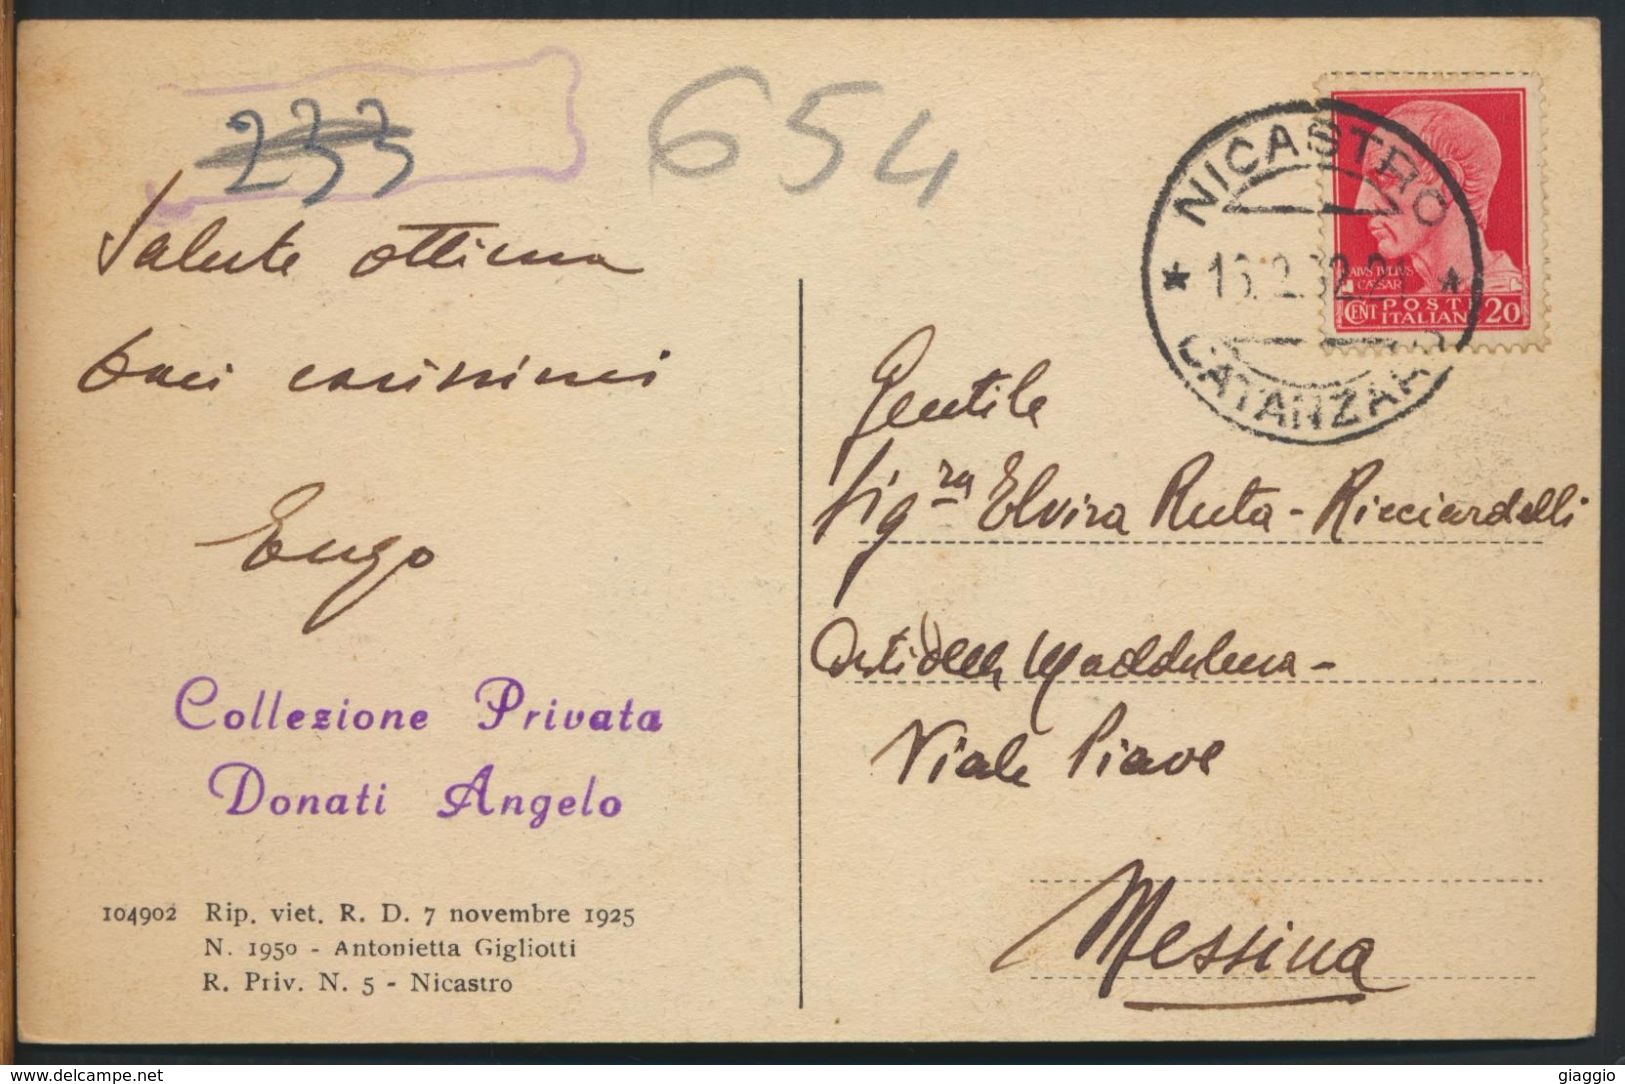 233
654
Salute ottima
baci carissimi
Enzo
Collezione Privata
Donati Angelo
104902 Rip. viet. R. D. 7 novembre 1925
N. 1950 - Antonietta Gigliotti
R. Priv. N. 5 - Nicastro
NICASTRO
CATANZARO
CAESAR
CENT POSTE ITALIANE 20
Gentile
Sig.ra Elvira Ruta-Ricciardelli
della Maddalena-
Viale Piave
Messina
www.delcampe.net
giaggio